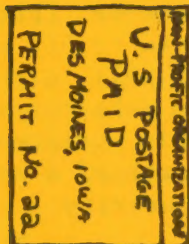 NON-PROFIT ORGANIZATION
U.S POSTAGE
PAID
DES MOINES, IOWA
PERMIT NO. 22